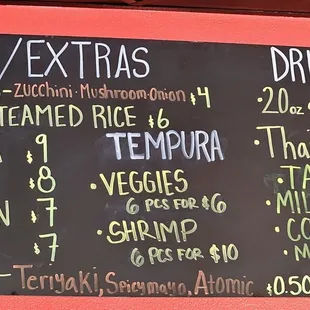 /EXTRAS
-Zucchini·Mushroom·Onion $4
STEAMED RICE $6
TEMPURA
$9
$8
$7
$7
·VEGGIES
6 PCS FOR $6
·SHRIMP
6 PCS FOR $10
- Teriyaki, Spicymayo, Atomic
DRI
·20oz
·Tha
·TA
MIL
·CO
·M
·$0.50